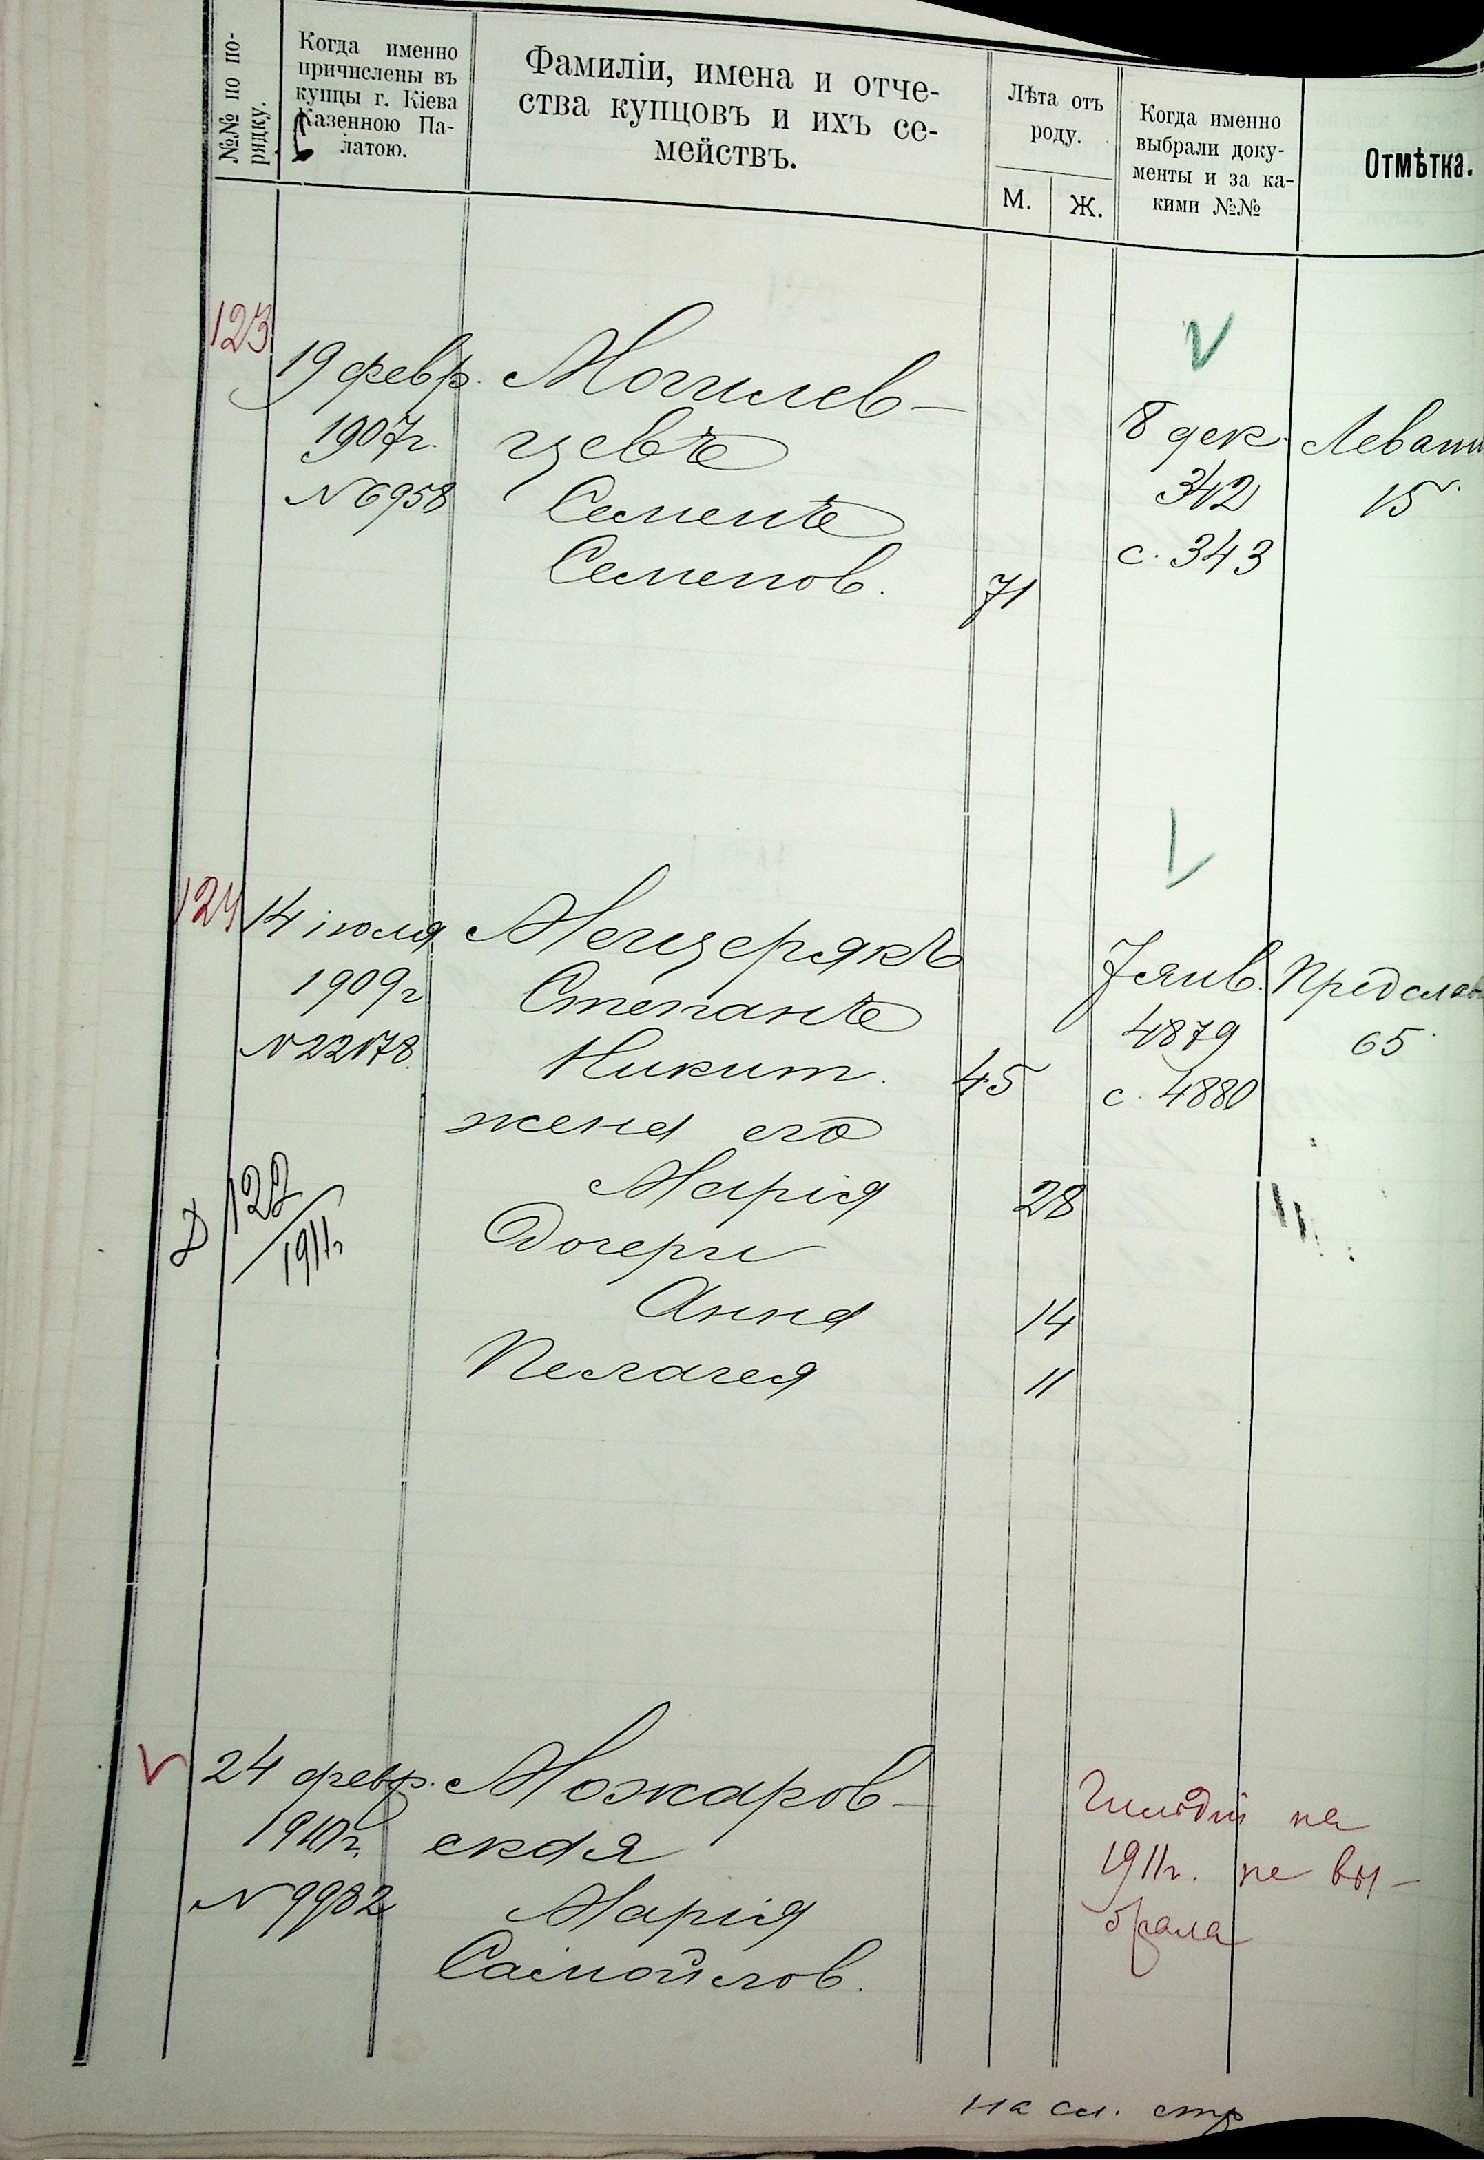 №№ по по-
рядку.
Когда именно
причислены въ
купцы г. Кіева
Казенною Па-
латою.
Фамиліи, имена и отче-
ства купцовъ и ихъ се-
мействъ.
Лѣта отъ
роду.
М.
Ж.
Когда именно
выбрали доку-
менты и за ка-
кими №№
Отмѣтка.
123
19 февр.
1907г.
N 6958
Могилев-
цевъ
Семенъ
Семенов.
71
8 дек.
342
с. 343
Леваш
15
124
14 іюля
1909г
N 22178
Мещерякъ
Степанъ
Никит.
45
жена его
Марія
28
Дочери
Анна
14
Пелагея
11
7 янв.
4879
с. 4880
Предслав
65
Д 122
1911г.
24 февр.
1910г.
N 9982
Можаров-
ская
Марія
Самойлов.
на
1911г. не вы-
брала
на сл. стр